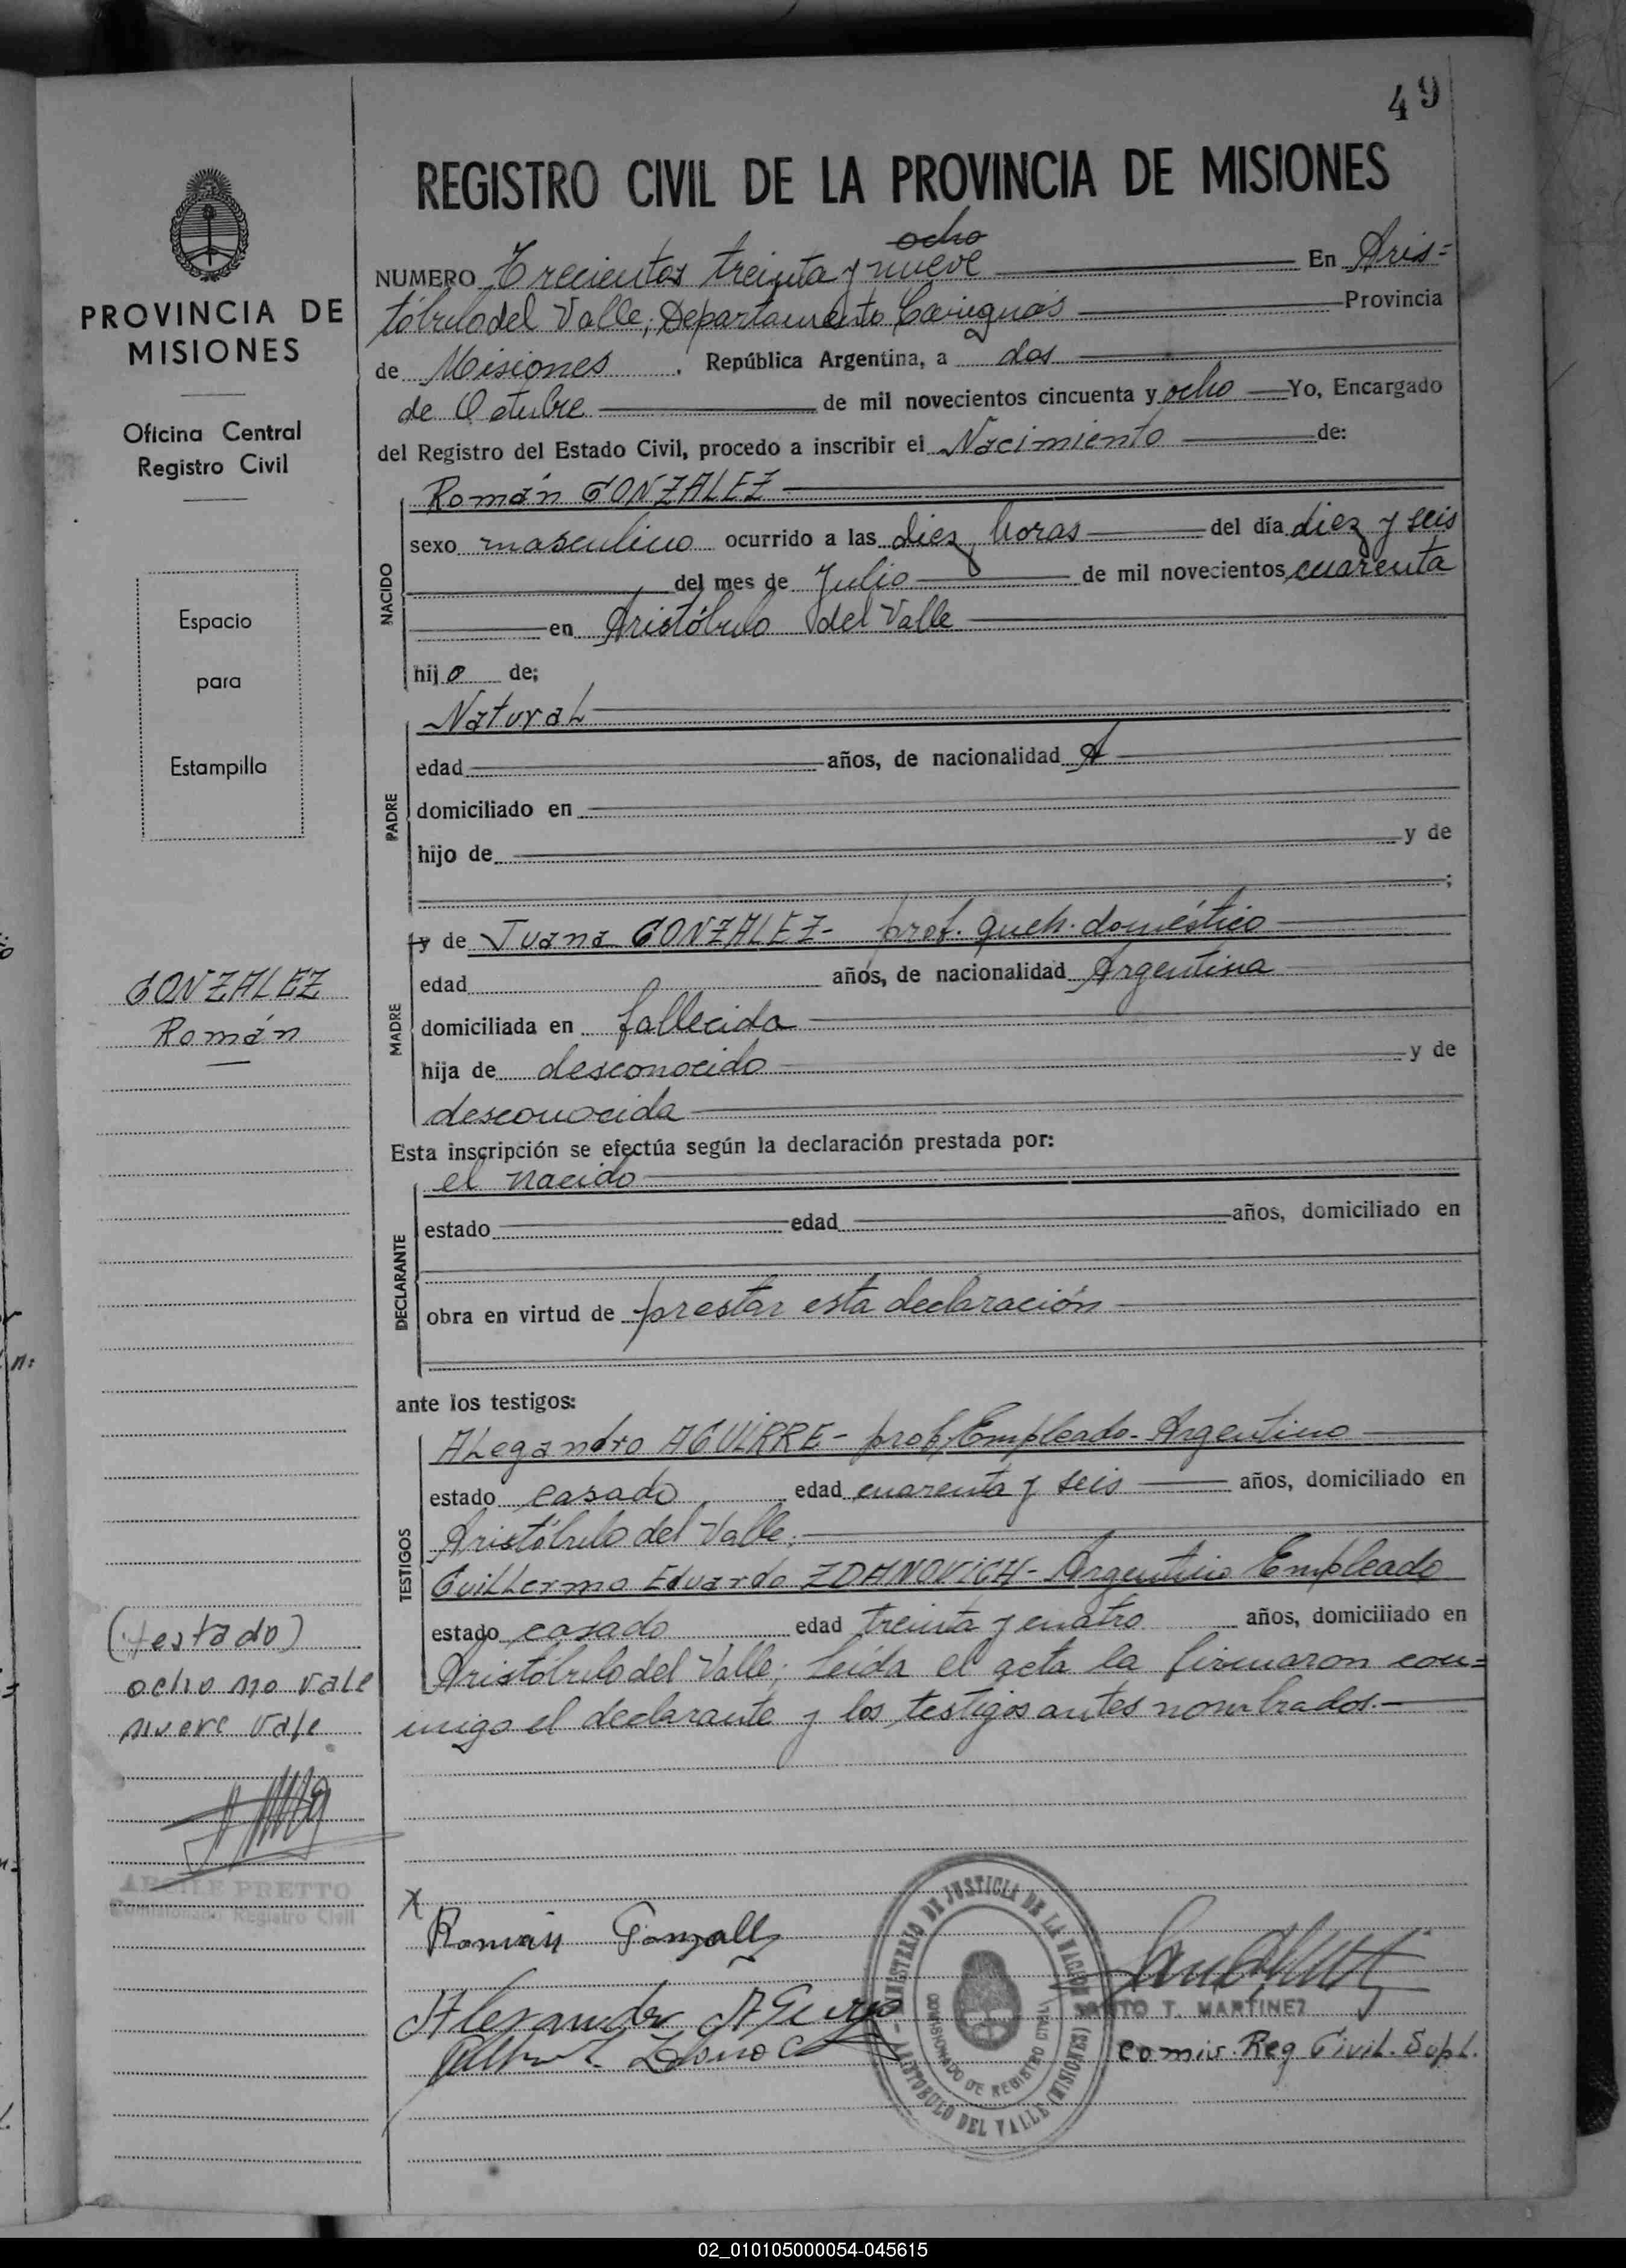 49
REGISTRO CIVIL DE LA PROVINCIA DE MISIONES
ocho
NUMERO Trecientos treinta y nueve En Aris=
tóbulo del Valle, Departamento Cainguás Provincia
de Misiones, República Argentina, a dos
de Octubre de mil novecientos cincuenta y ocho Yo, Encargado
del Registro del Estado Civil, procedo a inscribir el Nacimiento de:
NACIDO
Román GONZALEZ
sexo masculino ocurrido a las diez horas del día diez y seis
del mes de Julio de mil novecientos cuarenta
en Aristóbulo del Valle
hijo de;
PADRE
Natural
edad años, de nacionalidad A
domiciliado en
hijo de y de
;
MADRE
y de Juana GONZALEZ- prof. queh. doméstico
edad años, de nacionalidad Argentina
domiciliada en fallecida
hija de desconocido y de
desconocida
Esta inscripción se efectúa según la declaración prestada por:
DECLARANTE
el nacido
estado edad años, domiciliado en
obra en virtud de prestar esta declaración
ante los testigos:
TESTIGOS
ALegandro AGUIRRE- prof, Empleado- Argentino
estado casado edad cuarenta y seis años, domiciliado en
Aristóbulo del Valle;
GuilLermo Eduardo ZDANOVICH- Argentino Empleado
estado casado edad treinta y cuatro años, domiciliado en
Aristóbulo del Valle; Leída el acta la firmaron con=
migo el declarante y los testigos antes nombrados.-
X
Román
SANTO T. MARTINEZ
comis. Reg Civil. Supl.
MINISTERIO DE JUSTICIA DE LA NACION
ARISTOBULO DEL VALLE (MISIONES)
COMISIONADO DE REGISTRO CIVIL
PROVINCIA DE
MISIONES
Oficina Central
Registro Civil
Espacio
para
Estampilla
GONZALEZ
Román
(testado)
ocho no vale
nueve vale
PRETTO
Comisionado Registro Civil
02_010105000054-045615